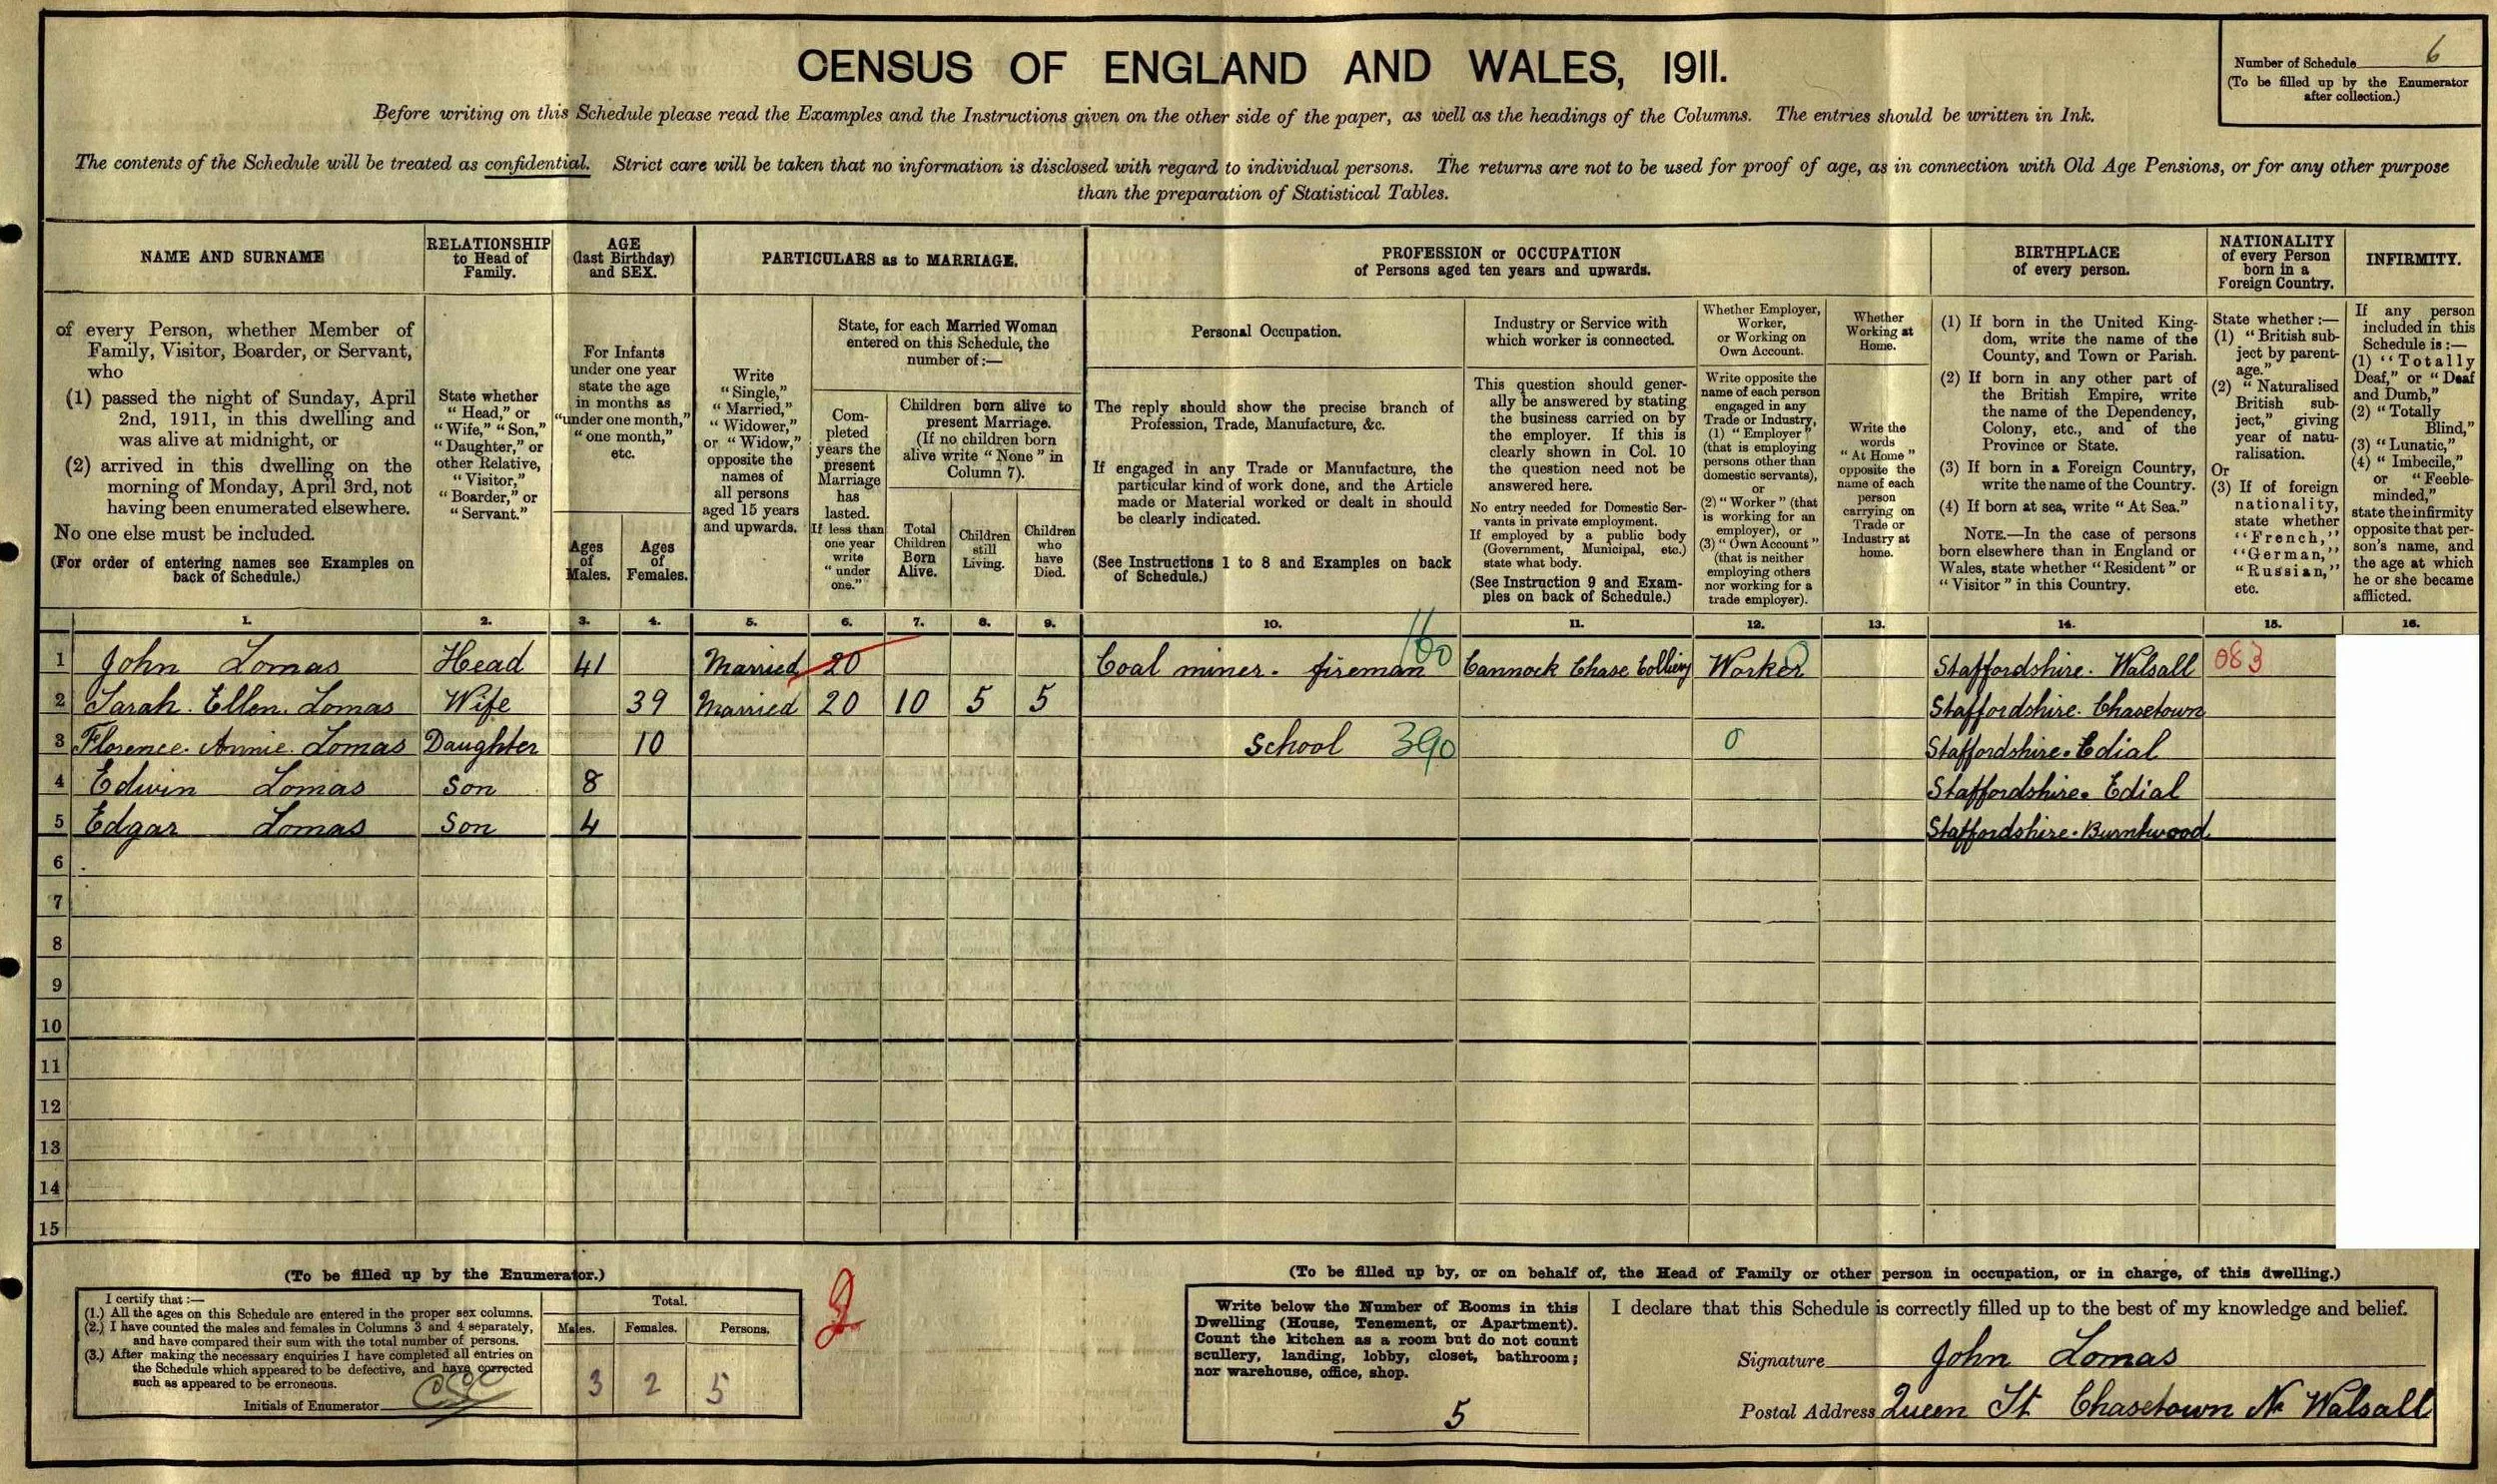 CENSUS OF ENGLAND AND WALES, 1911.
Number of Schedule 6
(To be filled up by the Enumerator
after collection.)
Before writing on this Schedule please read the Examples and the Instructions given on the other side of the paper, as well as the headings of the Columns. The entries should be written in Ink.
The contents of the Schedule will be treated as confidential. Strict care will be taken that no information is disclosed with regard to individual persons. The returns are not to be used for proof of age, as in connection with Old Age Pensions, or for any other purpose
than the preparation of Statistical Tables.
NAME AND SURNAME
of every Person, whether Member of
Family, Visitor, Boarder, or Servant,
who
(1) passed the night of Sunday, April
2nd, 1911, in this dwelling and
was alive at midnight, or
(2) arrived in this dwelling on the
morning of Monday, April 3rd, not
having been enumerated elsewhere.
No one else must be included.
(For order of entering names see Examples on
back of Schedule.)
RELATIONSHIP
to Head of
Family.
State whether
"Head," or
"Wife," "Son,"
"Daughter," or
other Relative,
"Visitor,"
"Boarder," or
"Servant."
AGE
(last Birthday)
and SEX.
For Infants
under one year
state the age
in months as
"under one month,"
"one month,"
etc.
Ages
of
Males.
Ages
of
Females.
PARTICULARS as to MARRIAGE.
Write
"Single,"
"Married,"
"Widower,"
or "Widow,"
opposite the
names of
all persons
aged 15 years
and upwards.
State, for each Married Woman
entered on this Schedule, the
number of:—
Com-
pleted
years the
present
Marriage
has
lasted.
If less than
one year
write
"under
one."
Children born alive to
present Marriage.
(If no children born
alive write "None" in
Column 7).
Total
Children
Born
Alive.
Children
still
Living.
Children
who
have
Died.
PROFESSION or OCCUPATION
of Persons aged ten years and upwards.
Personal Occupation.
The reply should show the precise branch of
Profession, Trade, Manufacture, &c.
If engaged in any Trade or Manufacture, the
particular kind of work done, and the Article
made or Material worked or dealt in should
be clearly indicated.
(See Instructions 1 to 8 and Examples on back
of Schedule.)
Industry or Service with
which worker is connected.
This question should gener-
ally be answered by stating
the business carried on by
the employer. If this is
clearly shown in Col. 10
the question need not be
answered here.
No entry needed for Domestic Ser-
vants in private employment.
If employed by a public body
(Government, Municipal, etc.)
state what body.
(See Instruction 9 and Exam-
ples on back of Schedule.)
Whether Employer,
Worker,
or Working on
Own Account.
Write opposite the
name of each person
engaged in any
Trade or Industry,
(1) "Employer"
(that is employing
persons other than
domestic servants),
or
(2) "Worker" (that
is working for an
employer), or
(3) "Own Account"
(that is neither
employing others
nor working for a
trade employer).
Whether
Working at
Home.
Write the
words
"At Home"
opposite the
name of each
person
carrying on
Trade or
Industry at
home.
BIRTHPLACE
of every person.
(1) If born in the United King-
dom, write the name of the
County, and Town or Parish.
(2) If born in any other part of
the British Empire, write
the name of the Dependency,
Colony, etc., and of the
Province or State.
(3) If born in a Foreign Country,
write the name of the Country.
(4) If born at sea, write "At Sea."
NOTE.—In the case of persons
born elsewhere than in England or
Wales, state whether "Resident" or
"Visitor" in this Country.
NATIONALITY
of every Person
born in a
Foreign Country.
State whether :—
(1) "British sub-
ject by parent-
age."
(2) "Naturalised
British sub-
ject," giving
year of natu-
ralisation.
Or
(3) If of foreign
nationality,
state whether
"French,"
"German,"
"Russian,"
etc.
INFIRMITY.
If any person
included in this
Schedule is :—
(1) "Totally
Deaf," or "Deaf
and Dumb,"
(2) "Totally
Blind,"
(3) "Lunatic,"
(4) "Imbecile,"
or "Feeble-
minded,"
state the infirmity
opposite that per-
son's name, and
the age at which
he or she became
afflicted.
1. 2. 3. 4. 5. 6. 7. 8. 9. 10. 11. 12. 13. 14. 15. 16.
1 John Lomas Head 41 Married 20 Coal miner. fireman 160 Cannock Chase Colliery Worker Staffordshire. Walsall 083
2 Sarah. Ellen. Lomas Wife 39 Married 20 10 5 5 Staffordshire. Chasetown
3 Florence. Annie. Lomas Daughter 10 School 390 0 Staffordshire. Edial
4 Edwin Lomas Son 8 Staffordshire. Edial
5 Edgar Lomas Son 4 Staffordshire. Burntwood
6
7
8
9
10
11
12
13
14
15
(To be filled up by the Enumerator.)
I certify that :—
(1.) All the ages on this Schedule are entered in the proper sex columns.
(2.) I have counted the males and females in Columns 3 and 4 separately,
and have compared their sum with the total number of persons.
(3.) After making the necessary enquiries I have completed all entries on
the Schedule which appeared to be defective, and have corrected
such as appeared to be erroneous.
Initials of Enumerator
Total.
Males. Females. Persons.
3 2 5
(To be filled up by, or on behalf of, the Head of Family or other person in occupation, or in charge, of this dwelling.)
Write below the Number of Rooms in this
Dwelling (House, Tenement, or Apartment).
Count the kitchen as a room but do not count
scullery, landing, lobby, closet, bathroom;
nor warehouse, office, shop.
5
I declare that this Schedule is correctly filled up to the best of my knowledge and belief.
Signature John Lomas
Postal Address Queen St Chasetown Nr Walsall